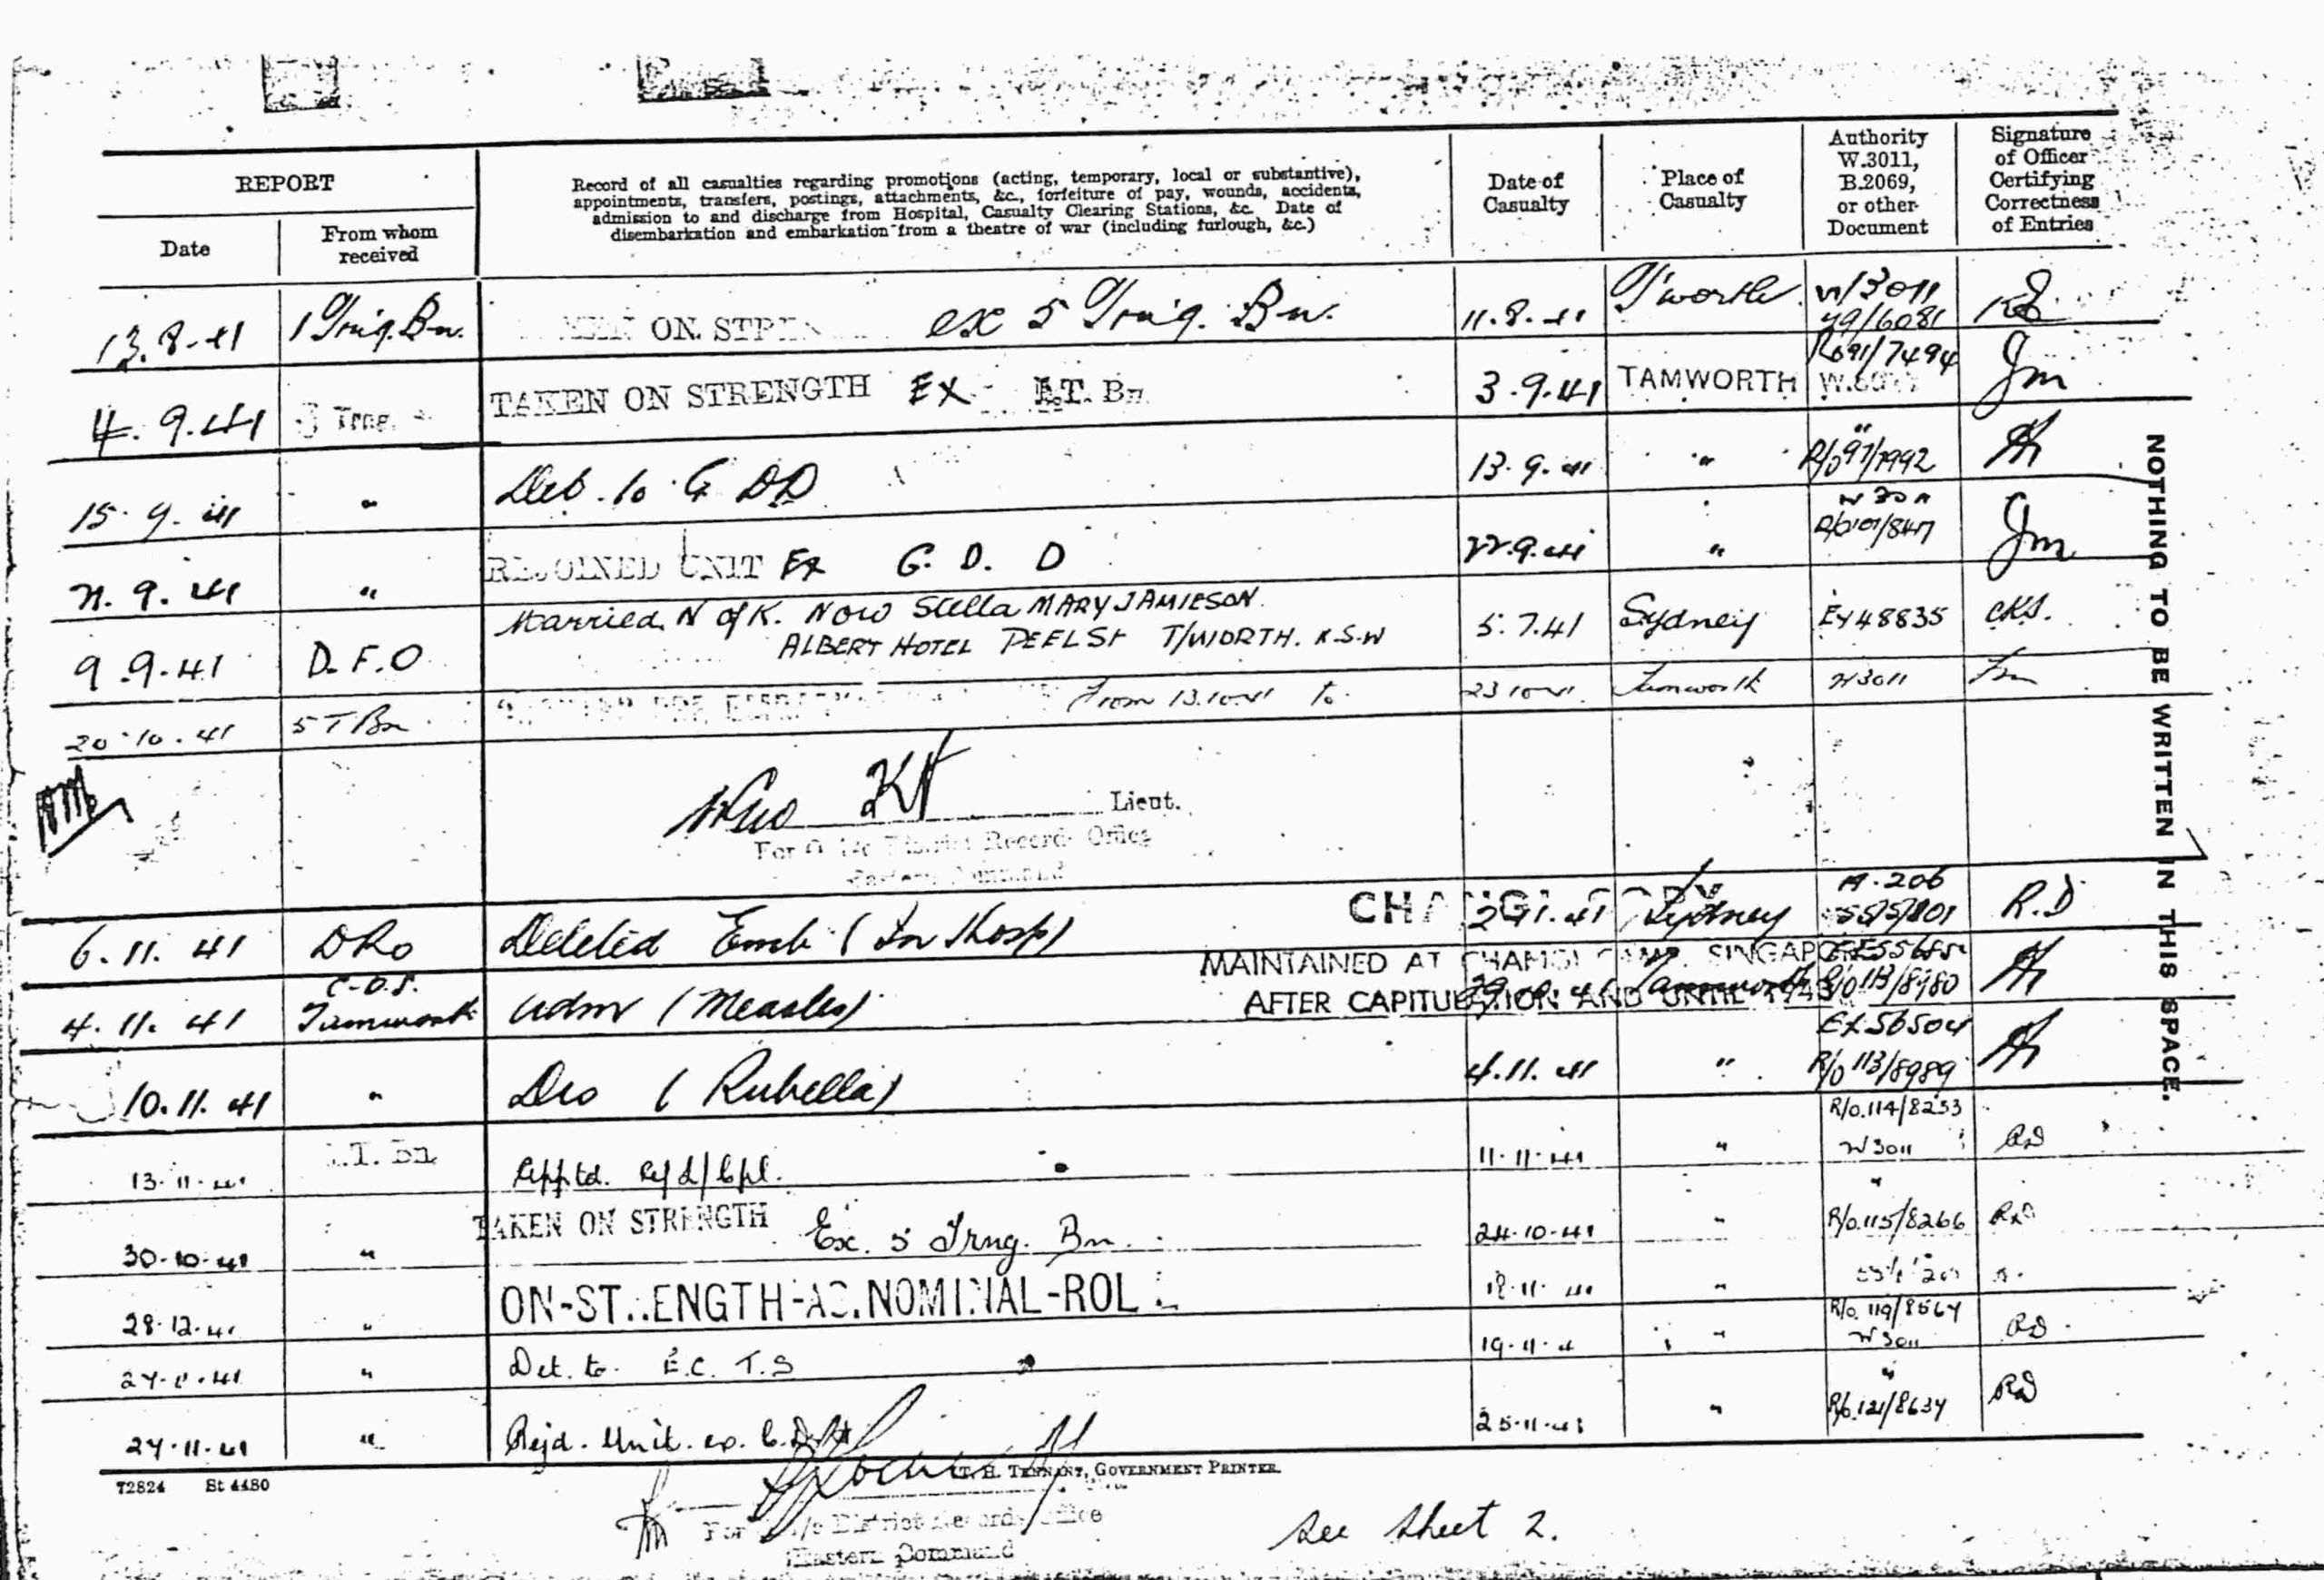 REPORT
Date
From whom
received
Record of all casualties regarding promotions (acting, temporary, local or substantive),
appointments, transfers, postings, attachments, &c., forfeiture of pay, wounds, accidents,
admission to and discharge from Hospital, Casualty Clearing Stations, &c. Date of
disembarkation and embarkation from a theatre of war (including furlough, &c.)
Date of
Casualty
Place of
Casualty
Authority
W.3011,
B.2069,
or other
Document
Signature
of Officer
Certifying
Correctness
of Entries
13.8.41 1 Trng. Bn. ON STR ex 5 Trng. Bn. 11.8.41 T'worth W/3011
79/6081
R091/7494
4.9.41 Trng. TAKEN ON STRENGTH EX I.T. Bn 3.9.41 TAMWORTH Jm
15.9.41 " Det. to G DD 13.9.41 " R/o97/7992
9.41 " REJOINED UNIT Ex G. D. D 22.9.41 " Jm
9.9.41 D.F.O Married N of K. Now Stella MARY JAMIESON 5.7.41 Sydney EX48835 CKS.
ALBERT HOTEL PEEL St T/WORTH. N.S.W
20.10.41 5 T Bn From 13.10.41 to 23.10.41 Tamworth W3011
Lieut.
For O i/c District Records Office
Eastern Command
CHANGI COPY
6.11.41 DRO Deleted Emb (In Hosp) 41 Sydney A.206
55/5/801 R.D
MAINTAINED AT CHANGI CAMP, SINGAPORE
AFTER CAPITULATION AND UNTIL
4.11.41 C.D.S.
Tamworth Adm (Measles) Tamworth R/o 113/8980
EX56504
10.11.41 " Dis (Rubella) 4.11.41 " R/o 113/8989
R/o.114/8253
13.11.41 I.T. Bn Apptd. A/L/Cpl. 11.11.41 " W3011 RD
30.10.41 " TAKEN ON STRENGTH Ex. 5 Trng. Bn. 24.10.41 " R/o.115/8266
28.12.41 " ON-STRENGTH-AS.NOMINAL-ROLL 18.11.41 "
R/o. 119/8564
24.11.41 " Det. to E.C.T.S 19.11.41 " W3011 RD
27.11.41 " Rejd. Unit. ex. 25.11.41 " R/o.121/8634 RD
72824 St 4480
T. H. TENNANT, GOVERNMENT PRINTER.
For O i/c District Records Office
Eastern Command
See Sheet 2.
NOTHING TO BE WRITTEN IN THIS SPACE.